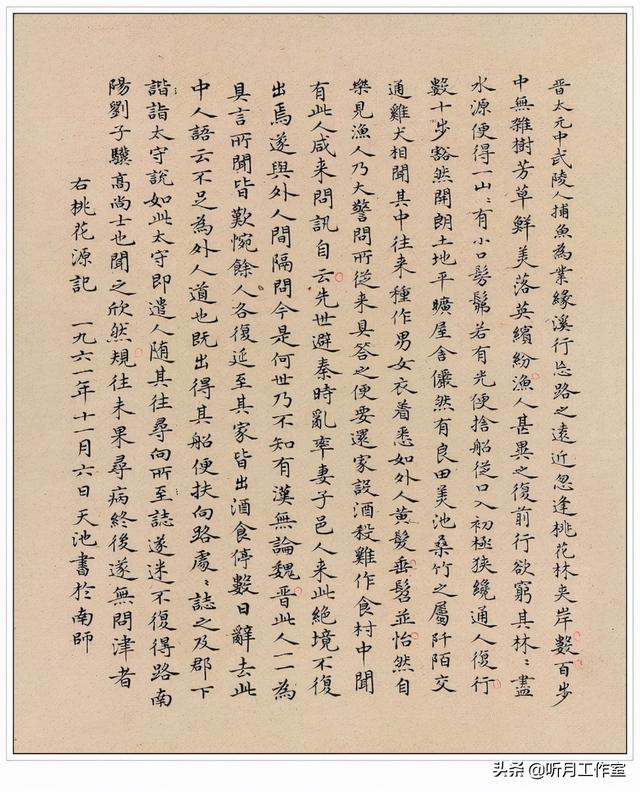 晋太元中武陵人捕魚為業緣溪行忘路之遠近忽逢桃花林夾岸數百步
中無雜樹芳草鮮美落英繽紛漁人甚異之復前行欲窮其林〻盡
水源便得一山〻有小口髣髴若有光便捨船從口入初極狹纔通人復行
數十步豁然開朗土地平曠屋舍儼然有良田美池桑竹之屬阡陌交
通雞犬相聞其中往来種作男女衣着悉如外人黄髮垂髫並怡然自
樂見漁人乃大驚問所從来具答之便要還家設酒殺雞作食村中聞
有此人咸来問訊自云先世避秦時亂率妻子邑人来此絕境不復
出焉遂與外人間隔問今是何世乃不知有漢無論魏晋此人一一為
具言所聞皆歎惋餘人各復延至其家皆出酒食停數日辭去此
中人語云不足為外人道也既出得其船便扶向路處〻誌之及郡下
詣太守說如此太守即遣人随其往尋向所至誌遂迷不復得路南
陽劉子驥高尚士也聞之欣然規往未果尋病終後遂無問津者
右桃花源記 一九六一年十一月六日天池書於南師
头条 @听月工作室